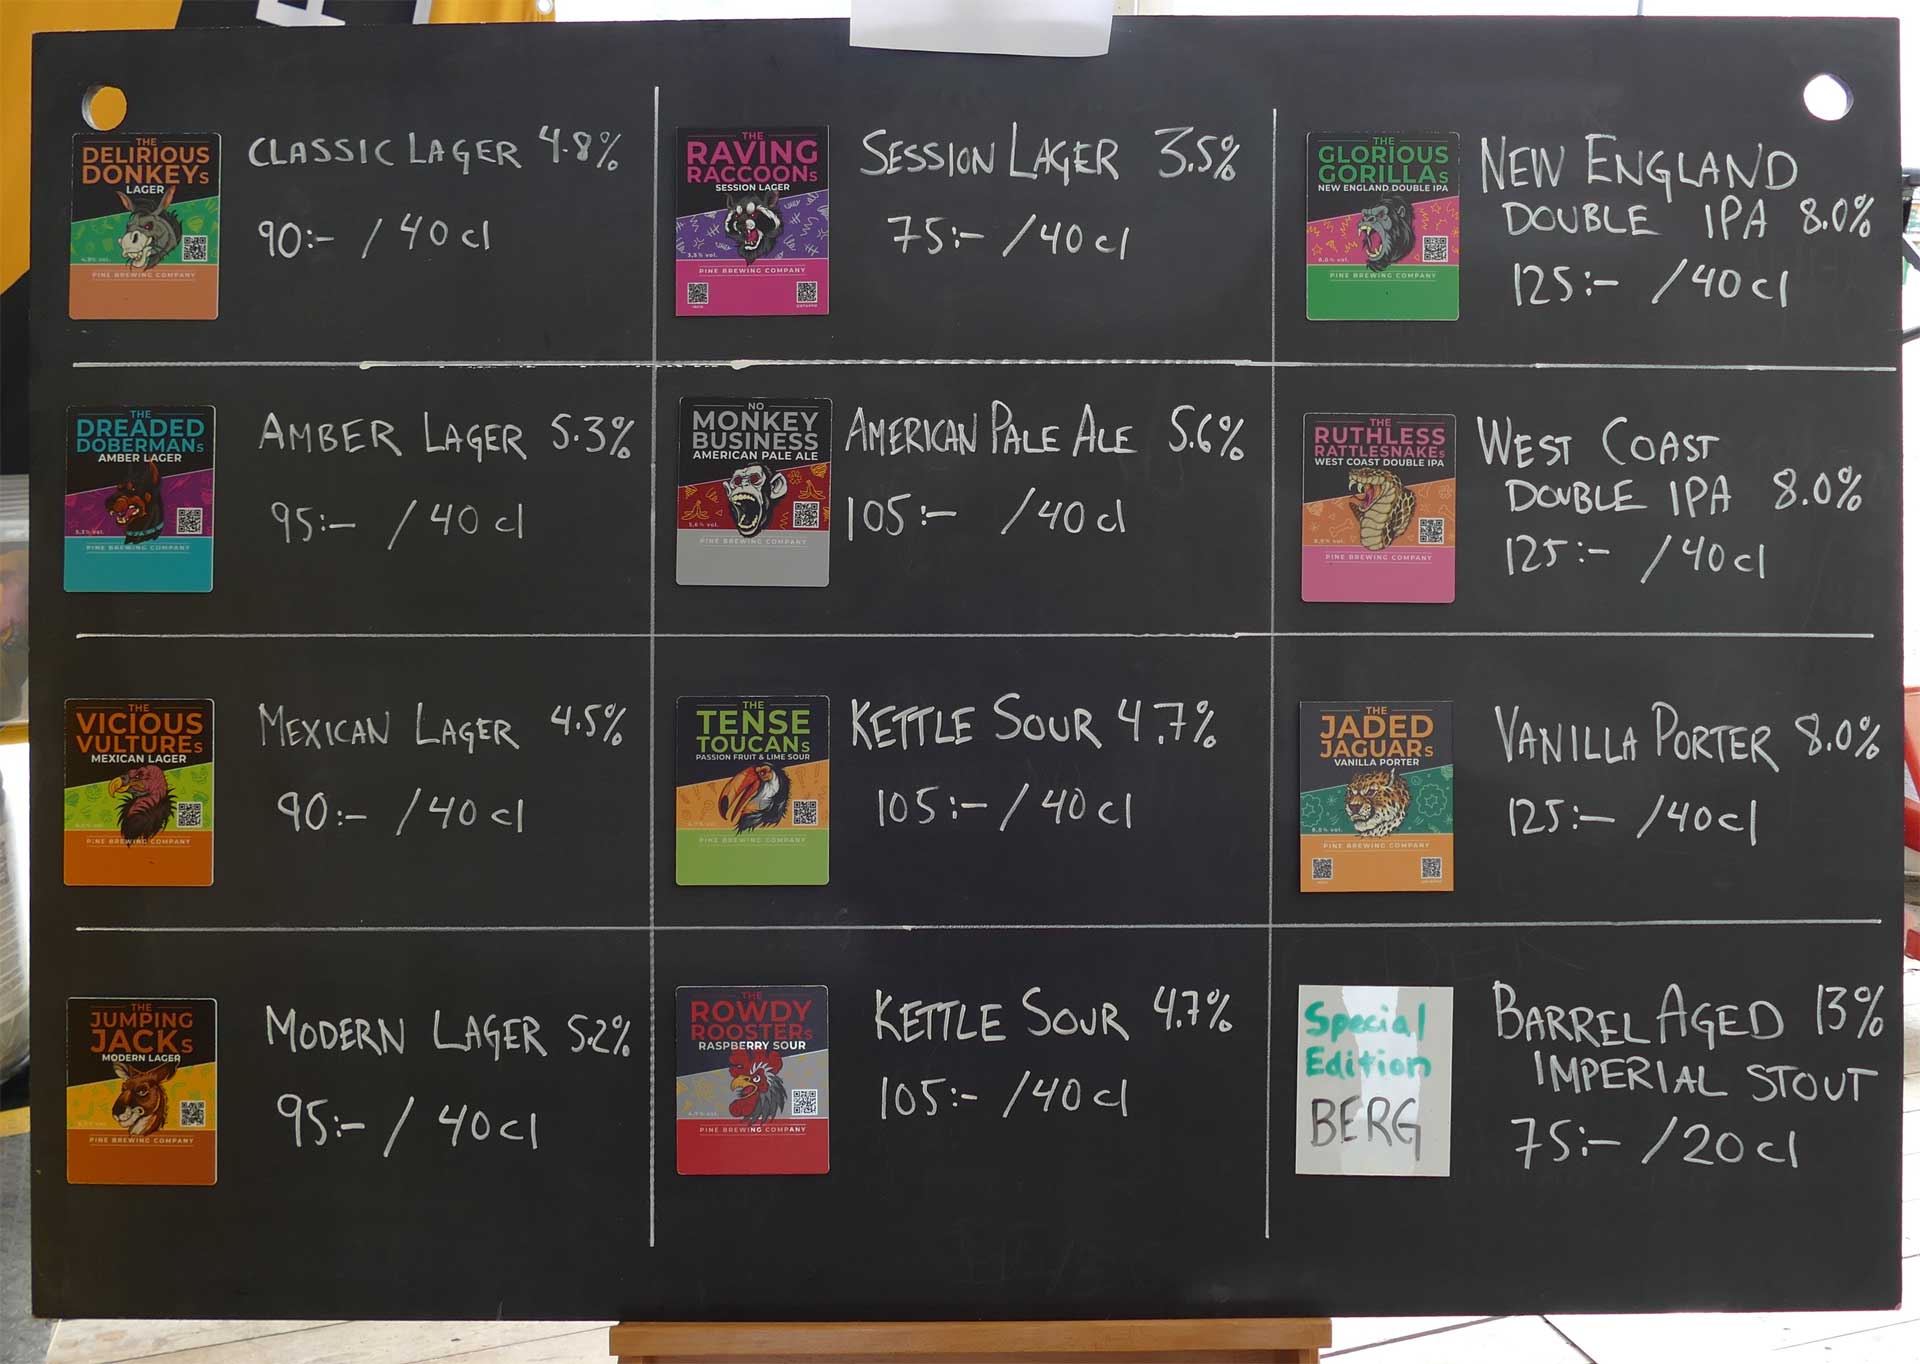 THE
DELIRIOUS
DONKEYS
LAGER
4,8% vol.
PINE BREWING COMPANY
CLASSIC LAGER 4.8%
90:- / 40 cl
THE
RAVING
RACCOONS
SESSION LAGER
3,5% vol.
PINE BREWING COMPANY
SESSION LAGER 3.5%
75:- / 40 cl
THE
GLORIOUS
GORILLAS
NEW ENGLAND DOUBLE IPA
8,0% vol.
PINE BREWING COMPANY
NEW ENGLAND
DOUBLE IPA 8.0%
125:- / 40 cl
THE
DREADED
DOBERMANS
AMBER LAGER
5,3% vol.
PINE BREWING COMPANY
AMBER LAGER 5.3%
95:- / 40 cl
NO
MONKEY
BUSINESS
AMERICAN PALE ALE
5,6% vol.
PINE BREWING COMPANY
AMERICAN PALE ALE 5.6%
105:- / 40 cl
THE
RUTHLESS
RATTLESNAKES
WEST COAST DOUBLE IPA
8,0% vol.
PINE BREWING COMPANY
WEST COAST
DOUBLE IPA 8.0%
125:- / 40 cl
THE
VICIOUS
VULTURES
MEXICAN LAGER
PINE BREWING COMPANY
MEXICAN LAGER 4.5%
90:- / 40 cl
THE
TENSE
TOUCANS
PASSION FRUIT & LIME SOUR
PINE BREWING COMPANY
KETTLE SOUR 4.7%
105:- / 40 cl
THE
JADED
JAGUARS
VANILLA PORTER
8,0% vol.
PINE BREWING COMPANY
VANILLA PORTER 8.0%
125:- / 40 cl
THE
JUMPING
JACKS
MODERN LAGER
PINE BREWING COMPANY
MODERN LAGER 5.2%
95:- / 40 cl
THE
ROWDY
ROOSTERS
RASPBERRY SOUR
4,7% vol.
PINE BREWING COMPANY
KETTLE SOUR 4.7%
105:- / 40 cl
Special
Edition
BERG
BARREL AGED 13%
IMPERIAL STOUT
75:- / 20 cl